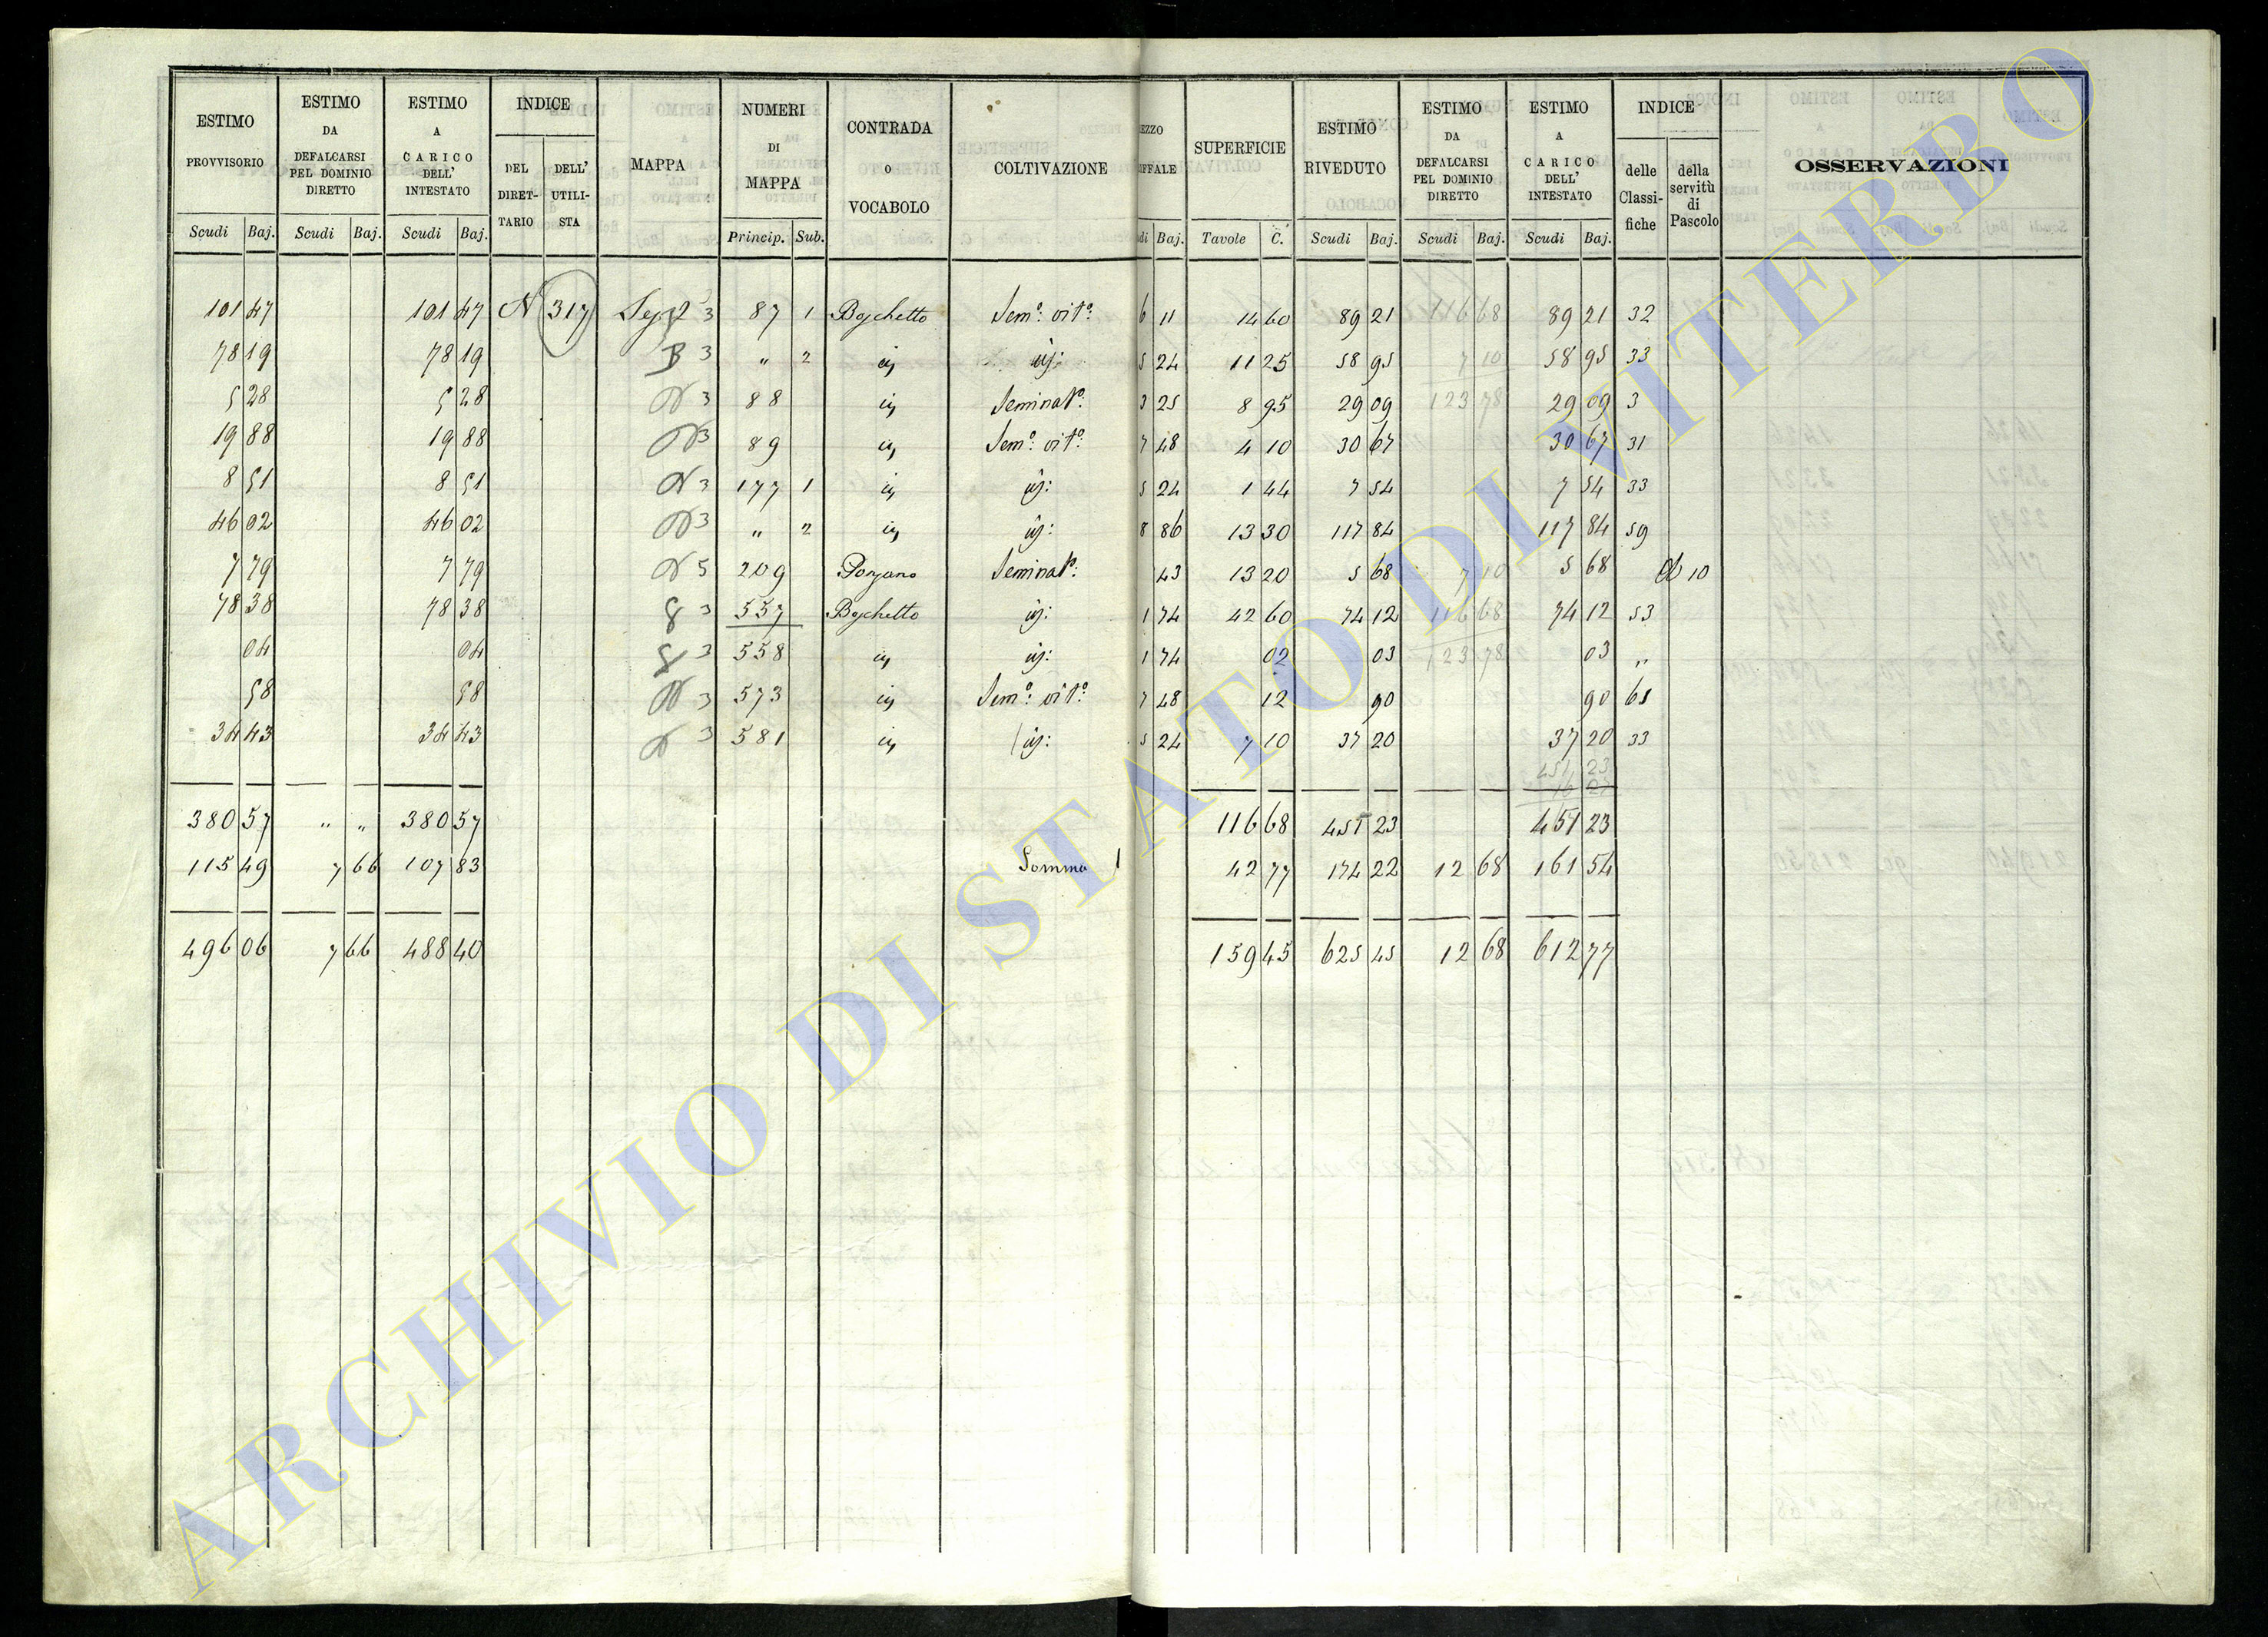 ESTIMO PROVVISORIO Scudi Baj.
ESTIMO DA DEFALCARSI PEL DOMINIO DIRETTO Scudi Baj.
ESTIMO A CARICO DELL' INTESTATO Scudi Baj.
INDICE DEL DIRET-TARIO DELL' UTILI-STA
MAPPA
NUMERI DI MAPPA Princip. Sub.
CONTRADA o VOCABOLO
COLTIVAZIONE
EZZO IFFALE di Baj.
SUPERFICIE Tavole C.
ESTIMO RIVEDUTO Scudi Baj.
ESTIMO DA DEFALCARSI PEL DOMINIO DIRETTO Scudi Baj.
ESTIMO A CARICO DELL' INTESTATO Scudi Baj.
INDICE delle Classi-fiche della servitù di Pascolo
OSSERVAZIONI
101 47 101 47 N 317 3 87 1 Boschetto Sem.o vit.o 6 11 14 60 89 21 116 68 89 21 32
78 19 78 19 B 3 " 2 58 24 11 25 58 95 7 10 58 95 33
5 28 5 28 3 88 Seminat.o 3 25 8 95 29 09 123 78 29 09 3
19 88 19 88 3 89 Sem.o vit.o 7 48 4 10 30 67 30 67 31
8 51 8 51 3 177 1 5 24 1 44 7 54 7 54 33
46 02 46 02 3 " 2 8 86 13 30 117 84 117 84 59
7 79 7 79 5 209 Ponzano Seminat.o 43 13 20 5 68 7 10 5 68 10
78 38 78 38 3 557 Boschetto 1 74 42 60 74 12 116 68 74 12 53
04 04 3 558 1 74 02 03 123 78 03 "
58 58 3 573 Sem.o vit.o 7 48 12 90 90 61
34 43 34 43 3 581 5 24 7 10 37 20 37 20 33
451 23
380 57 " " 380 57 116 68 451 23 451 23
115 49 7 66 107 83 Somma 42 77 174 22 12 68 161 54
496 06 7 66 488 40 159 45 625 45 12 68 612 77
ARCHIVIO DI STATO DI VITERBO